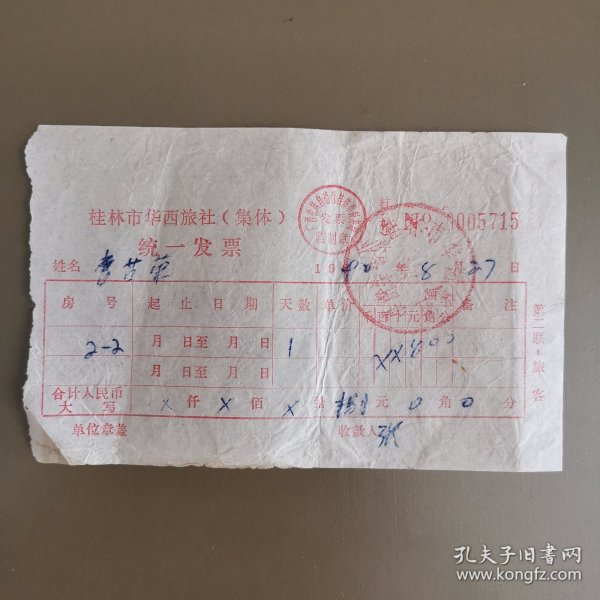 桂林市华西旅社(集体)
统一发票
发票
监制章
№ 0005715
姓名
19 年 8 月 27 日
房号 起止日期 天数 单价 备注
千百十元角分
2-2 月 日至 月 日 1
月 日至 月 日
合计人民币
大写 X 仟 X 佰 X 拾 元 0 角 0 分
单位章盖 收款人
第二联·旅客
孔夫子旧书网
www.kongfz.com